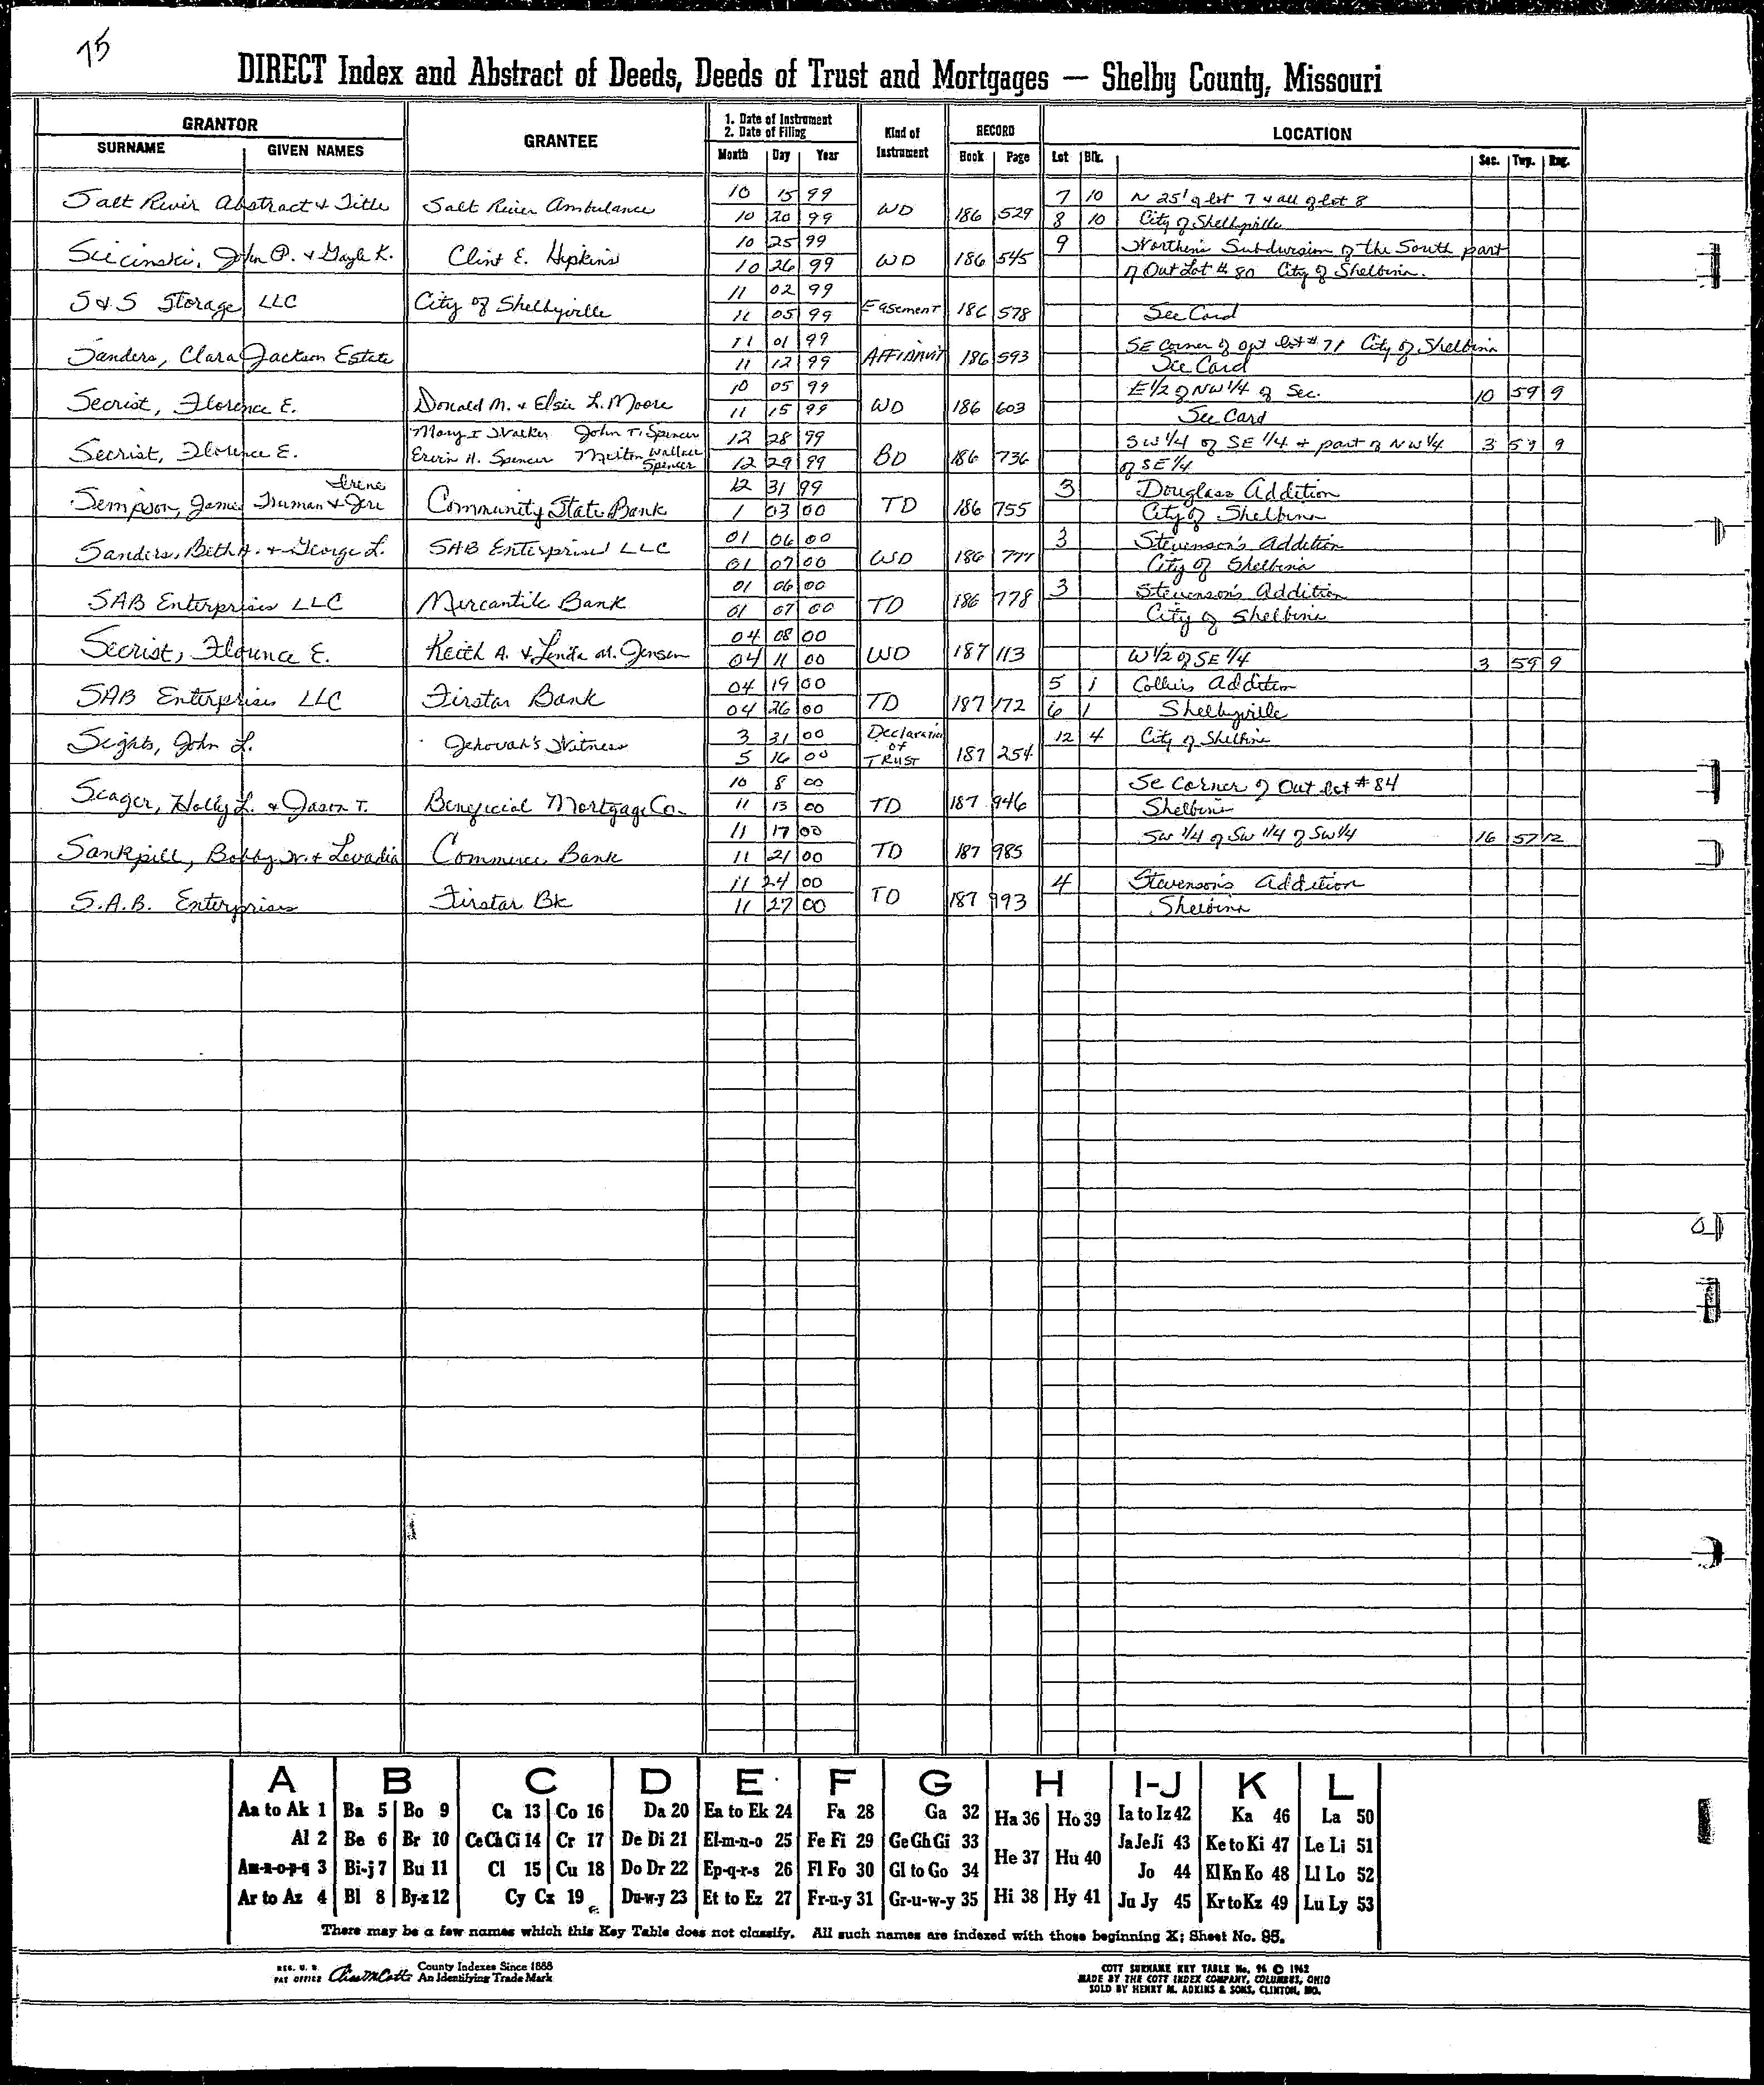 75
DIRECT Index and Abstract of Deeds, Deeds of Trust and Mortgages — Shelby County, Missouri
GRANTOR
SURNAME GIVEN NAMES
GRANTEE
1. Date of Instrument
2. Date of Filing
Month Day Year
Kind of Instrument
RECORD
Book Page
LOCATION
Lot Blk. Sec. Twp. Rng.
10 15 99 7 10 N 25' of lot 7 & all of lot 8
Salt River Abstract & Title Salt River Ambulance WD 186 529
10 20 99 8 10 City of Shelbyville
10 25 99 9 Northen's Subdivision of the South part
John P. & Gayle K. Clint E. Hipkins WD 186 545
10 26 99 of Out Lot # 80 City of Shelbina.
11 02 99
S & S Storage LLC City of Shelbyville Easement 186 578
11 05 99 See Card
11 01 99 SE Corner of out lot # 71 City of Shelbina
Sanders, Clara Jackson Estate AFFIDAVIT 186 593
11 12 99 See Card
10 05 99 E 1/2 of NW 1/4 of Sec. 10 59 9
Secrist, Florence E. Donald M. & Elsie L. Moore WD 186 603
11 15 99 See Card
Mary I Walker John T. Spencer 12 28 99 SW 1/4 of SE 1/4 & part of NW 1/4 3 59 9
Secrist, Florence E. Ervin H. Spencer Milton Wallace Spencer BD 186 736
12 29 99 of SE 1/4
Irene 12 31 99 3 Douglass Addition
Sempson, James Truman & Jeri Community State Bank TD 186 755
1 03 00 City of Shelbina
01 06 00 3 Stevenson's Addition
Sanders, Beth A. & George L. SAB Enterprises LLC WD 186 777
01 07 00 City of Shelbina
01 06 00 3 Stevenson's Addition
SAB Enterprises LLC Mercantile Bank TD 186 778
01 07 00 City of Shelbina
04 08 00
Secrist, Florence E. Keith A. & Linda M. Jensen WD 187 113
04 11 00 W 1/2 of SE 1/4 3 59 9
04 19 00 5 1 Collier Addition
SAB Enterprises LLC Firstar Bank TD 187 172
04 26 00 6 1 Shelbyville
3 31 00 Declaration 12 4 City of Shelbina
Sights, John L. Jehovah's Witness of 187 254
5 16 00 TRUST
10 8 00 SE Corner of Out lot # 84
Seager, Holly L. & Jason T. Beneficial Mortgage Co. TD 187 946
11 13 00 Shelbina
11 17 00 SW 1/4 of SW 1/4 of SW 1/4 16 57 12
Sankpill, Bobby W. & Levadia Commerce Bank TD 187 985
11 21 00
11 24 00 4 Stevenson's Addition
S.A.B. Enterprises Firstar Bk TD 187 993
11 27 00 Shelbina
A B C D E F G H I-J K L
Aa to Ak 1 Ba 5 Bo 9 Ca 13 Co 16 Da 20 Ea to Ek 24 Fa 28 Ga 32 Ha 36 Ho 39 Ia to Iz 42 Ka 46 La 50
Al 2 Be 6 Br 10 Ce Ch Ci 14 Cr 17 De Di 21 El-m-n-o 25 Fe Fi 29 Ge Gh Gi 33 He 37 Hu 40 Ja Je Ji 43 Ke to Ki 47 Le Li 51
Am-n-o-p-q 3 Bi-j 7 Bu 11 Cl 15 Cu 18 Do Dr 22 Ep-q-r-s 26 Fl Fo 30 Gl to Go 34 Jo 44 Kl Kn Ko 48 Ll Lo 52
Ar to Az 4 Bl 8 By-z 12 Cy Cz 19 Du-w-y 23 Et to Ez 27 Fr-u-y 31 Gr-u-w-y 35 Hi 38 Hy 41 Ju Jy 45 Kr to Kz 49 Lu Ly 53
There may be a few names which this Key Table does not classify. All such names are indexed with those beginning X; Sheet No. 95.
REG. U. S. PAT OFFICE
County Indexes Since 1888
An Identifying Trade Mark
COTT SURNAME KEY TABLE No. 96 © 1962
MADE BY THE COTT INDEX COMPANY, COLUMBUS, OHIO
SOLD BY HENRY M. ADKINS & SONS, CLINTON, MO.